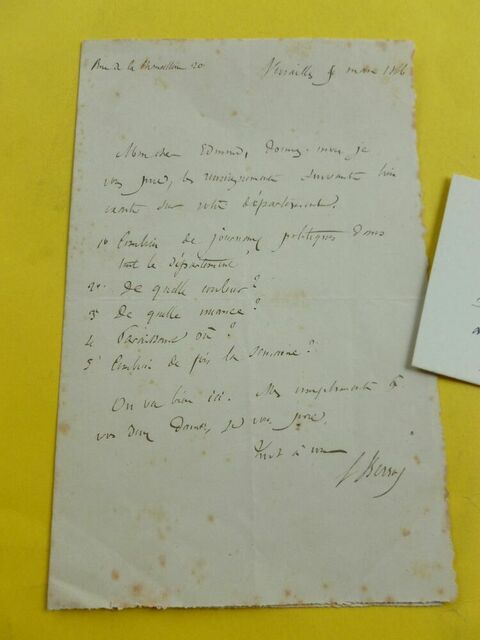 Rue de la 20
Versailles mars 1866
Mon cher Edmond, donnez-moi, je
vous prie, les renseignements suivants bien
exacts sur votre département?
1° Combien de journaux politiques dans
tout le département?
2° De quelle couleur?
3° De quelle nuance?
4 Paraissant où?
5° Combien de fois la semaine?
On va bien ici. Mes compliments à
vos deux dames, je vous prie,
Tout à vous
Bersot